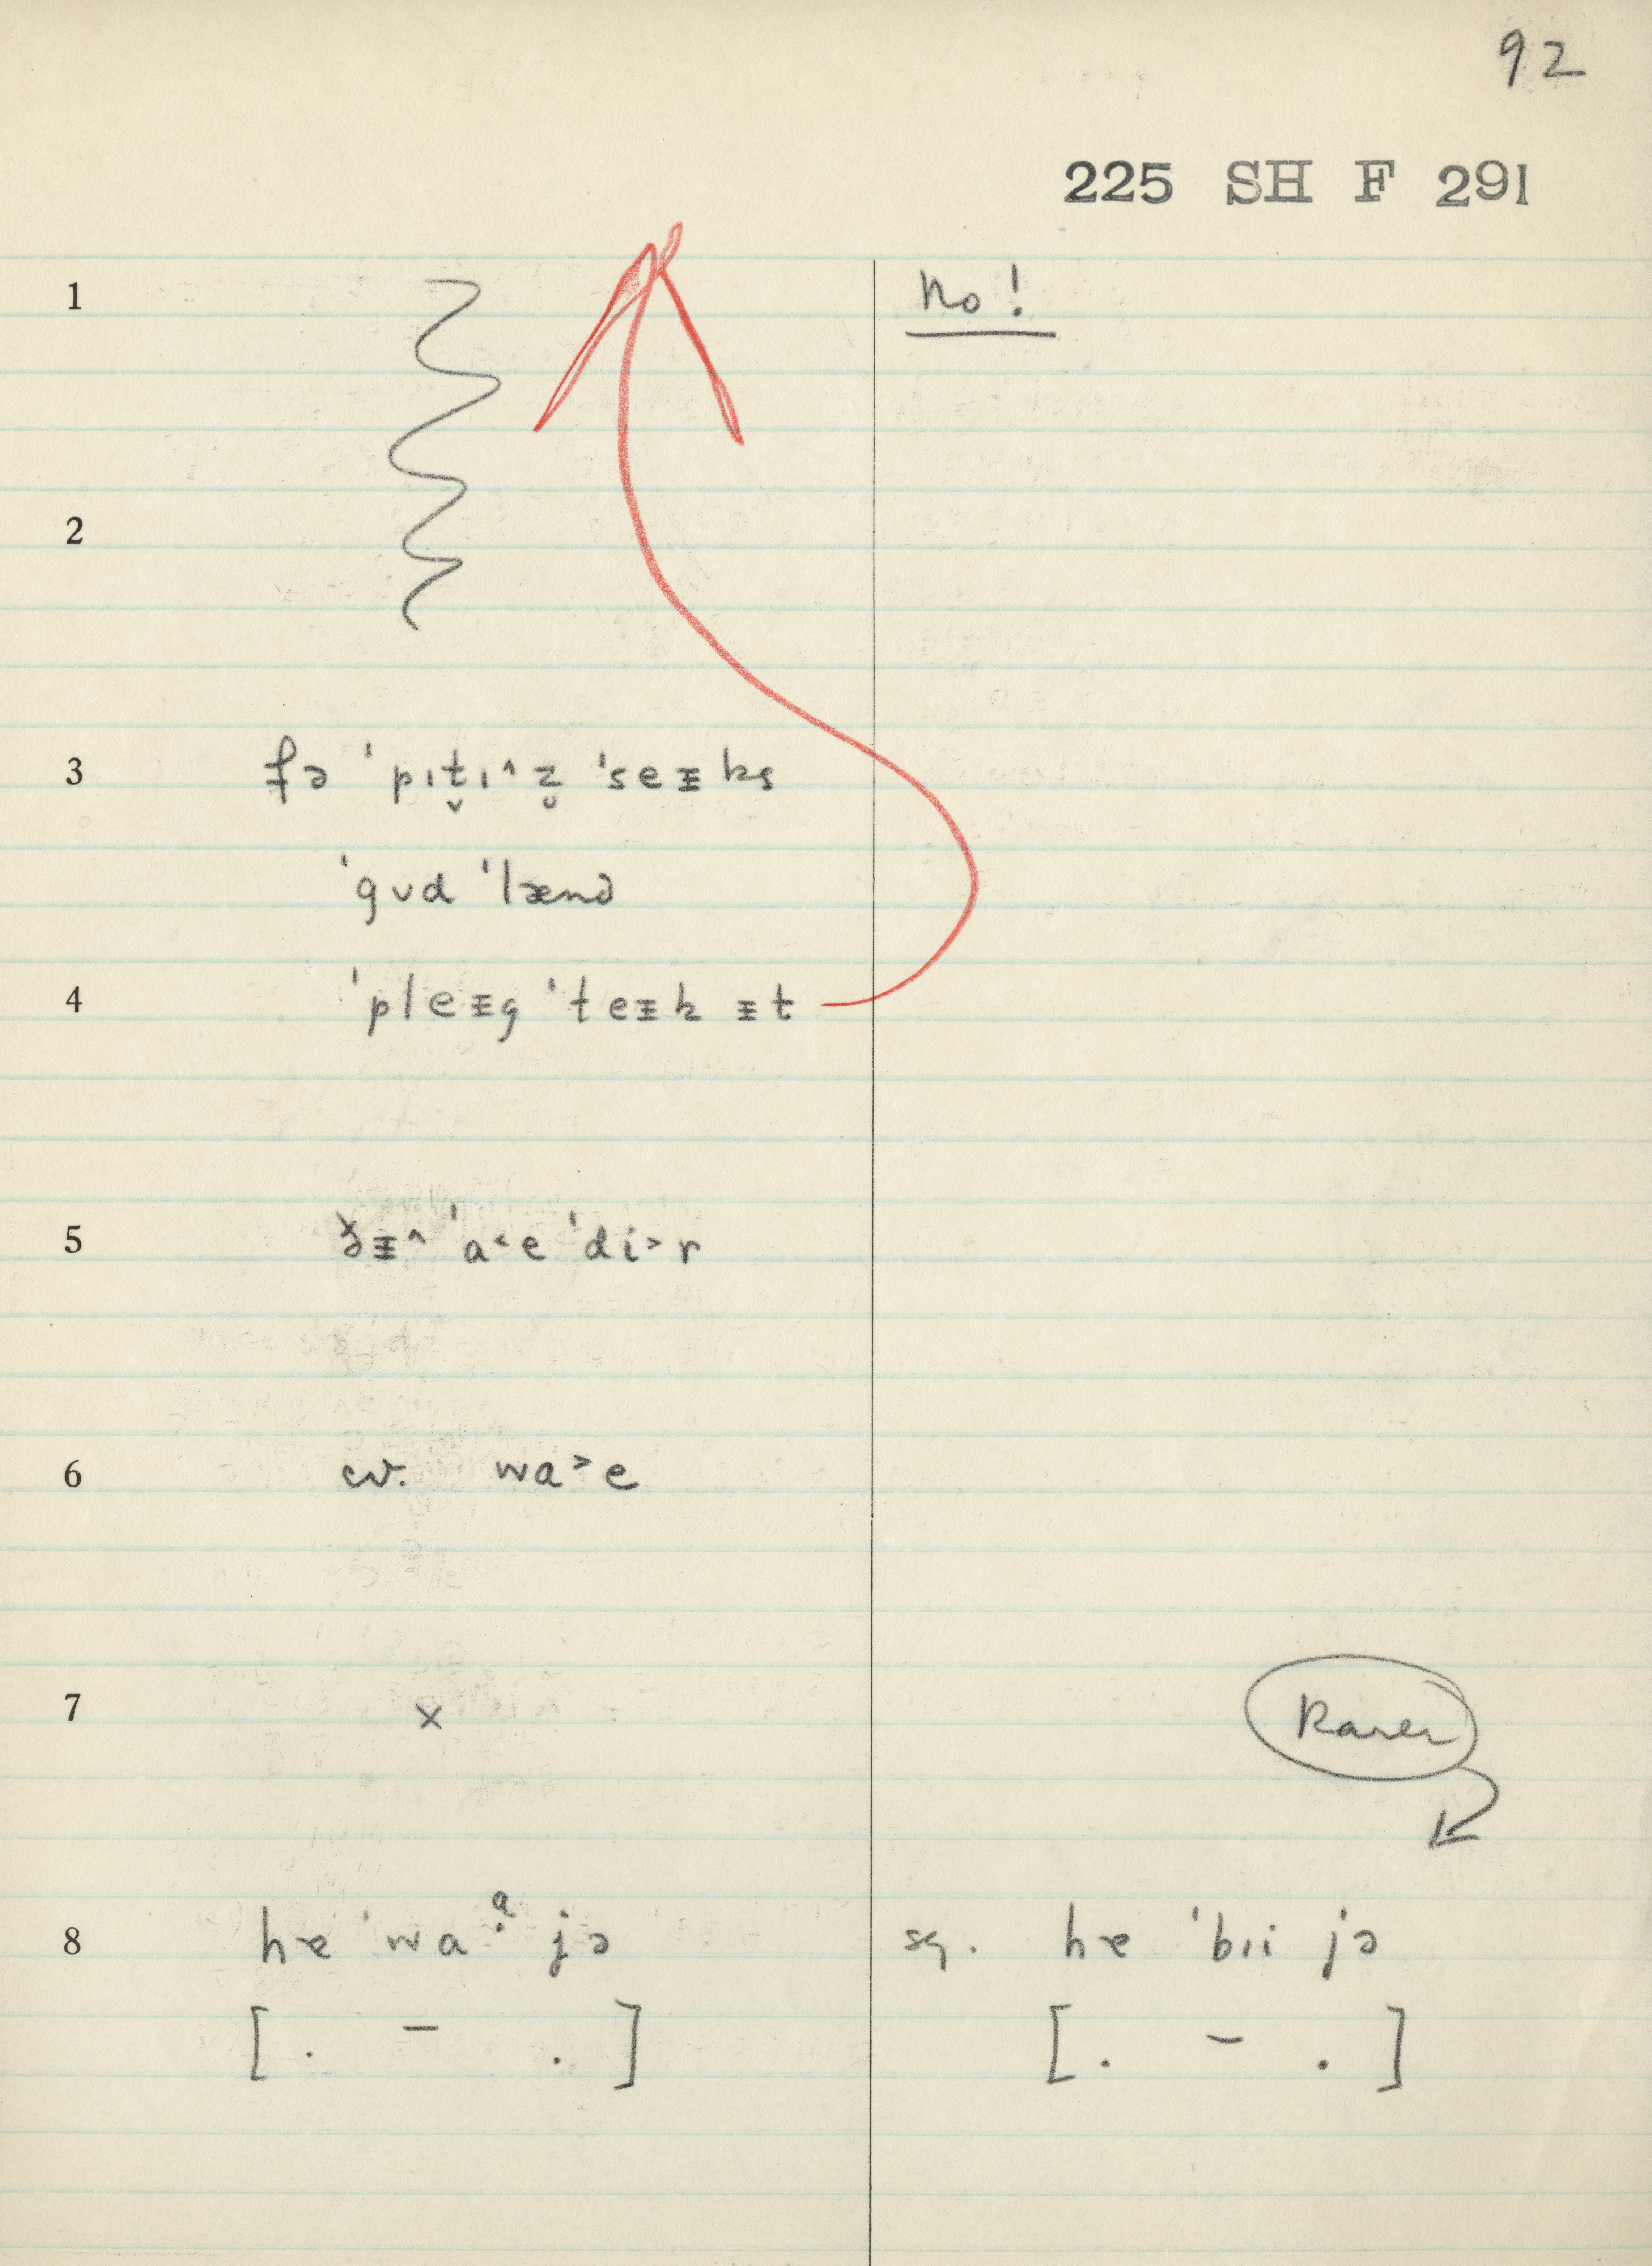 92
225 SH F 291
1 No!
2
3 fə ˈpɪt̬ɪ^z̥ ˈseᵻks
ˈgʊd ˈlænd
4 ˈpleᵻg ˈteᵻk ᵻt
5 ðᵻ^ ˈa˂e ˈdi˃r
6 cv. wa˃e
7 x Rarer
8 hɐ ˈwaᵊ jə sg. hɐ ˈbɪi jə
[ . – . ] [ . – . ]